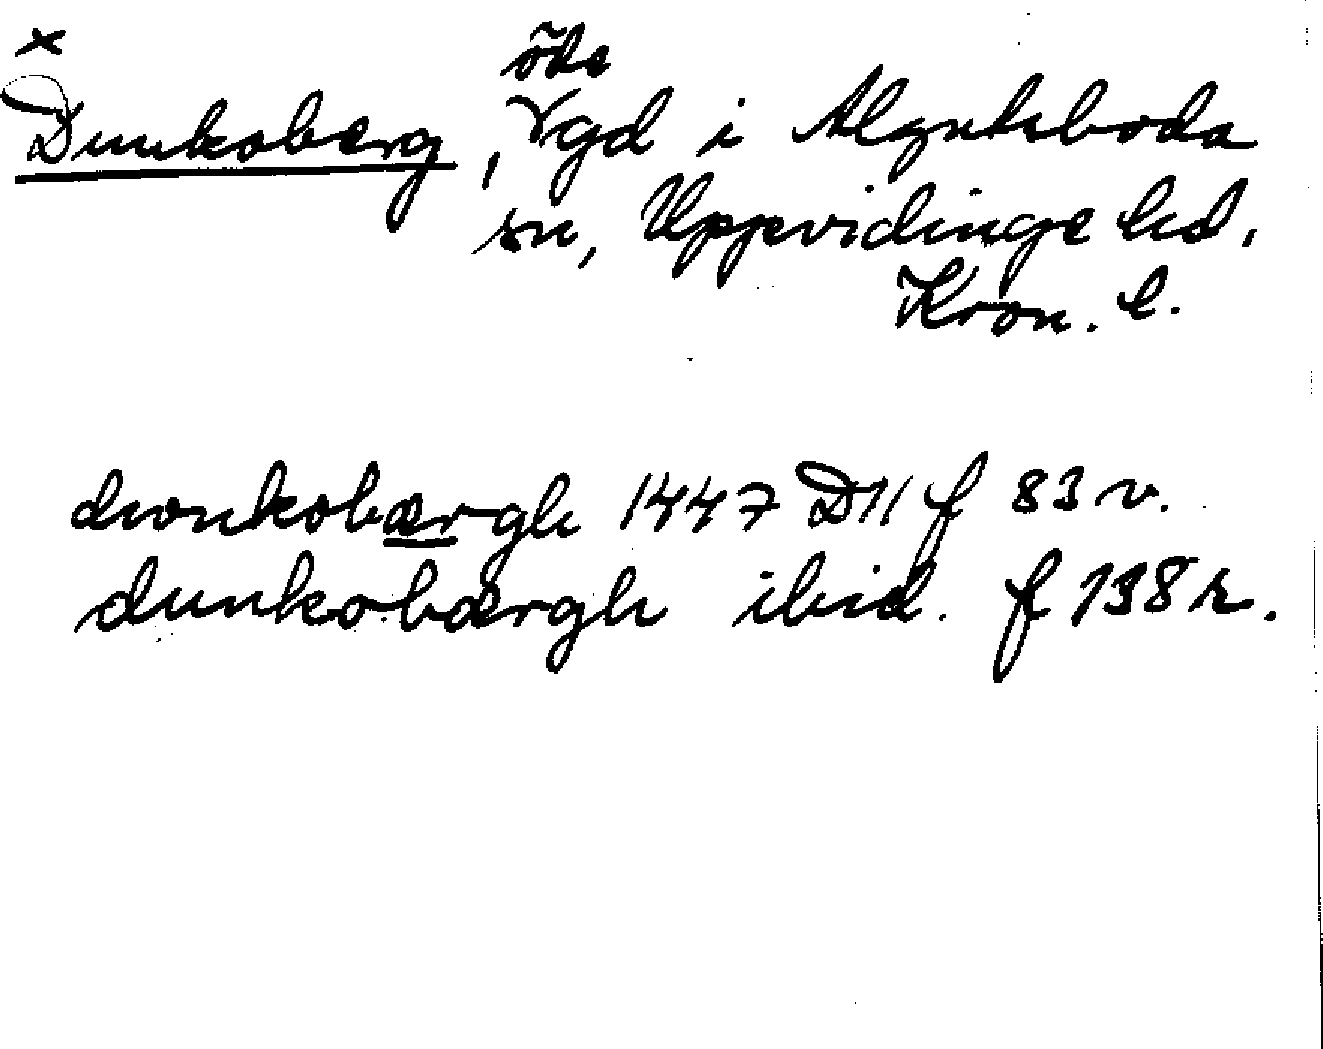 x
öde
Dunkoberg, gd i Algutsboda
sn, Uppvidinge hd.
Kron. l.
dwnkobærgh 1447 D11 f 83 v.
dunkobærgh ibid. f 138 r.